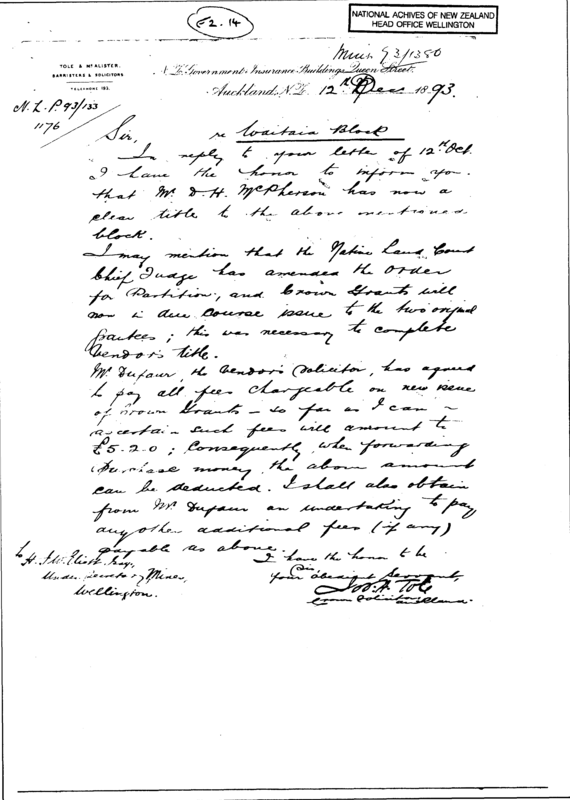 E2.14
NATIONAL ACHIVES OF NEW ZEALAND
HEAD OFFICE WELLINGTON
Mines 93/1380
TOLE & McALISTER.
BARRISTERS & SOLICITORS
TELEPHONE 182.
N.Z. Government Insurance Buildings Queen Street.
Auckland N.Z. 12th Dec 1893.
N.L.P. 93/133
1176
Sir, re Waitaia Block
In reply to your letter of 12th Oct.
I have the honor to inform you
that Mr D.H. McPherson has now a
clear title to the above mentioned
block.
I may mention that the Native Land Court
Chief Judge has amended the order
for Partition, and Crown Grants will
now in due course issue to the two original
grantees; this was necessary to complete
Vendor's title.
Mr Dufaur, the Vendor's Solicitor, has agreed
to pay all fees chargeable on new issue
of Crown Grants - so far as I can
ascertain such fees will amount to
£5.2.0; Consequently when forwarding
Purchase money the above amount
can be deducted. I shall also obtain
from Mr Dufaur an undertaking to pay
any other additional fees (if any)
payable as above.
I have the honor to be
Sir
Your obedient Servant,
Tole
Crown Solicitor Auckland.
To H.J.H. Eliott Esq,
Under Secretary Mines,
Wellington.